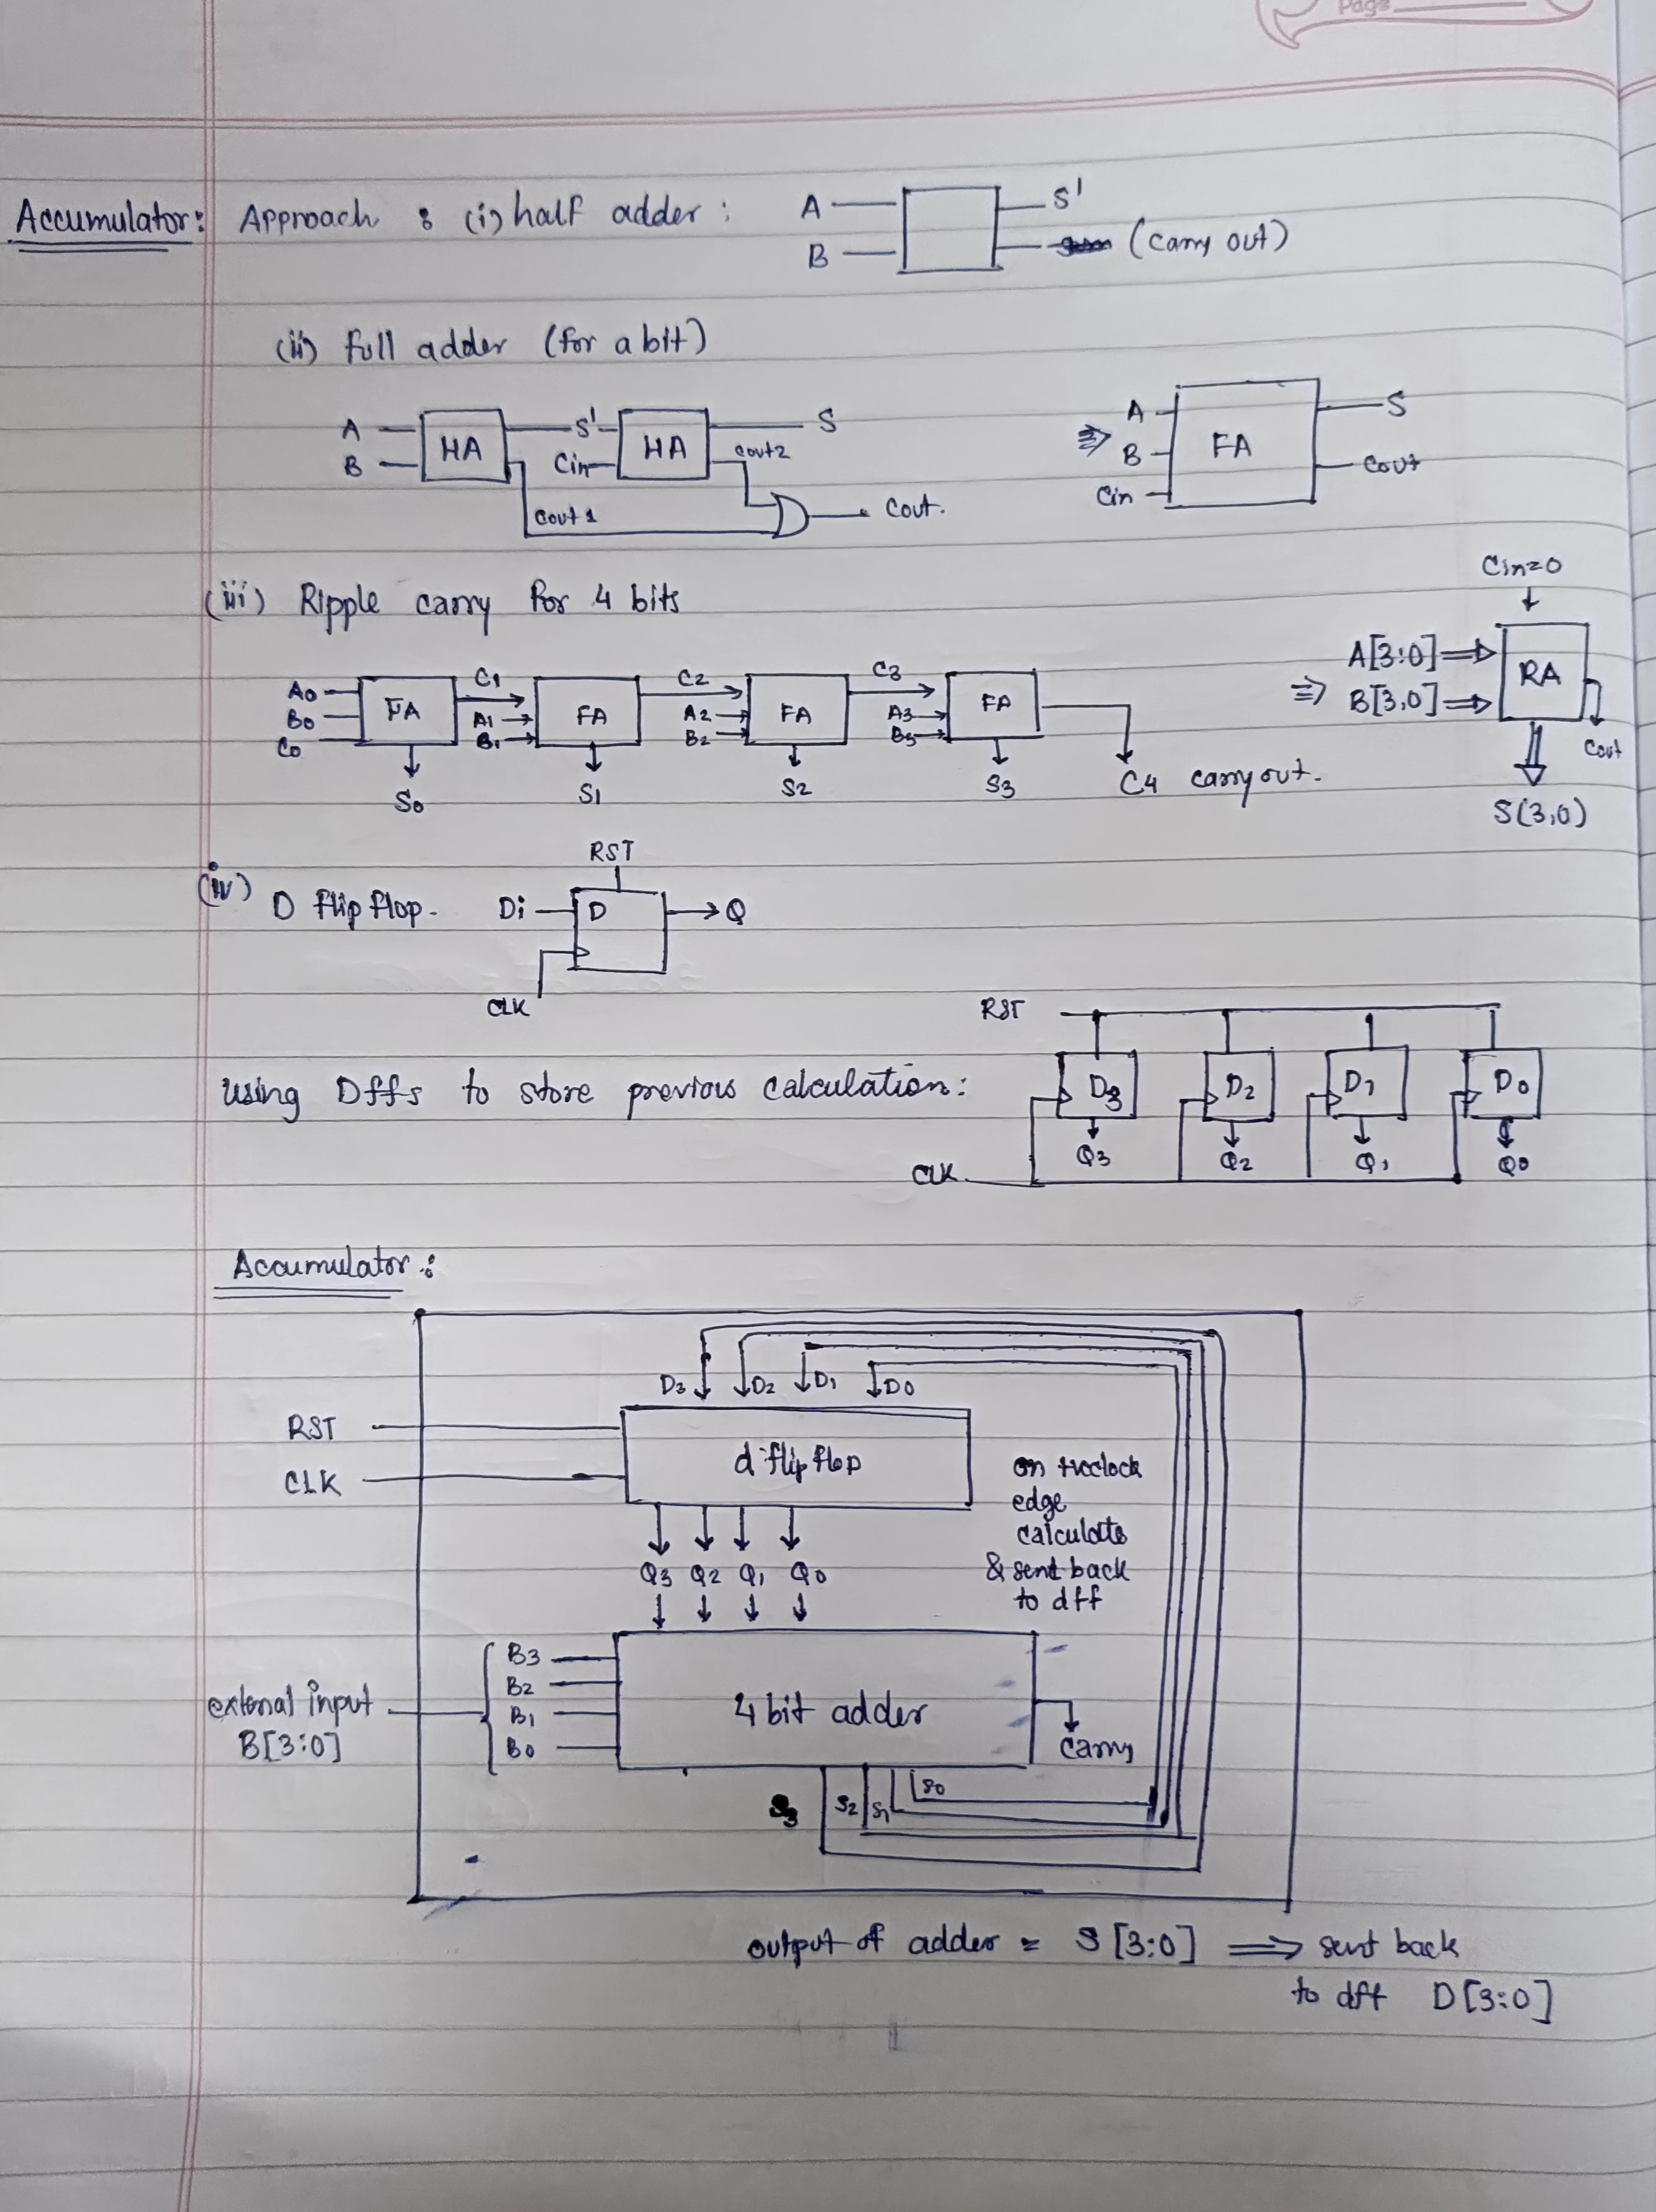 Page
Accumulator: Approach : (i) half adder : A S'
B (carry out)
(ii) full adder (for a bit)
A HA S' HA S
B Cin cout2
cout 1 Cout.
⇒ A FA S
B Cout
Cin
(iii) Ripple carry for 4 bits
A0 FA C1 FA C2 FA C3 FA
B0 A1 A2 A3
C0 B1 B2 B3
S0 S1 S2 S3 C4 carry out.
Cin=0
A[3:0] RA
⇒ B[3,0]
Cout
S(3,0)
(iv) D flip flop. Di D Q
RST
CLK
RST
using Dffs to store previous calculation: D3 D2 D1 D0
Q3 Q2 Q1 Q0
CLK
Accumulator :
D3 D2 D1 D0
RST
CLK
d flip flop
on +veclock
edge
calculate
& sent back
to dff
Q3 Q2 Q1 Q0
external input
B[3:0]
B3
B2
B1
B0
4 bit adder
Carry
S3 S2 S1 S0
output of adder = S[3:0] ⇒ sent back
to dff D[3:0]